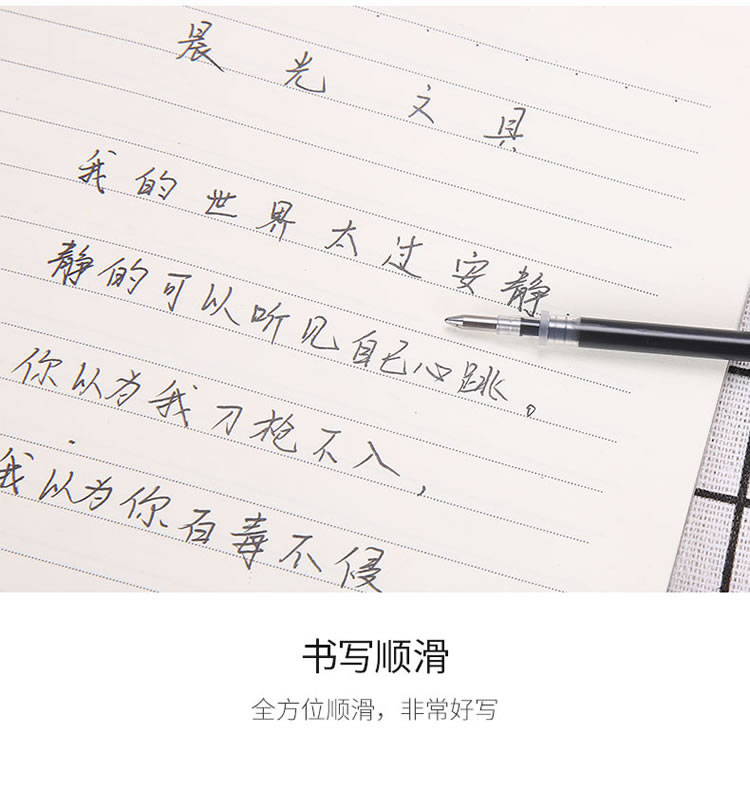 晨光文具
我的世界太过安静
静的可以听见自己心跳。
你以为我刀枪不入，
我以为你百毒不侵
书写顺滑
全方位顺滑，非常好写